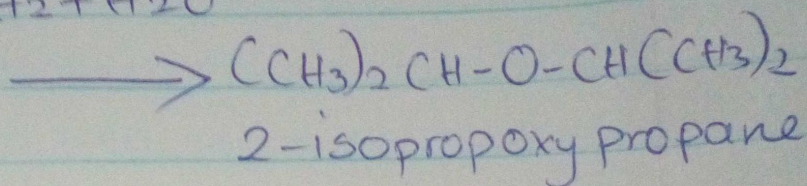 ⟶ (CH3)2 CH-O-CH(CH3)2
2-isopropoxy propane